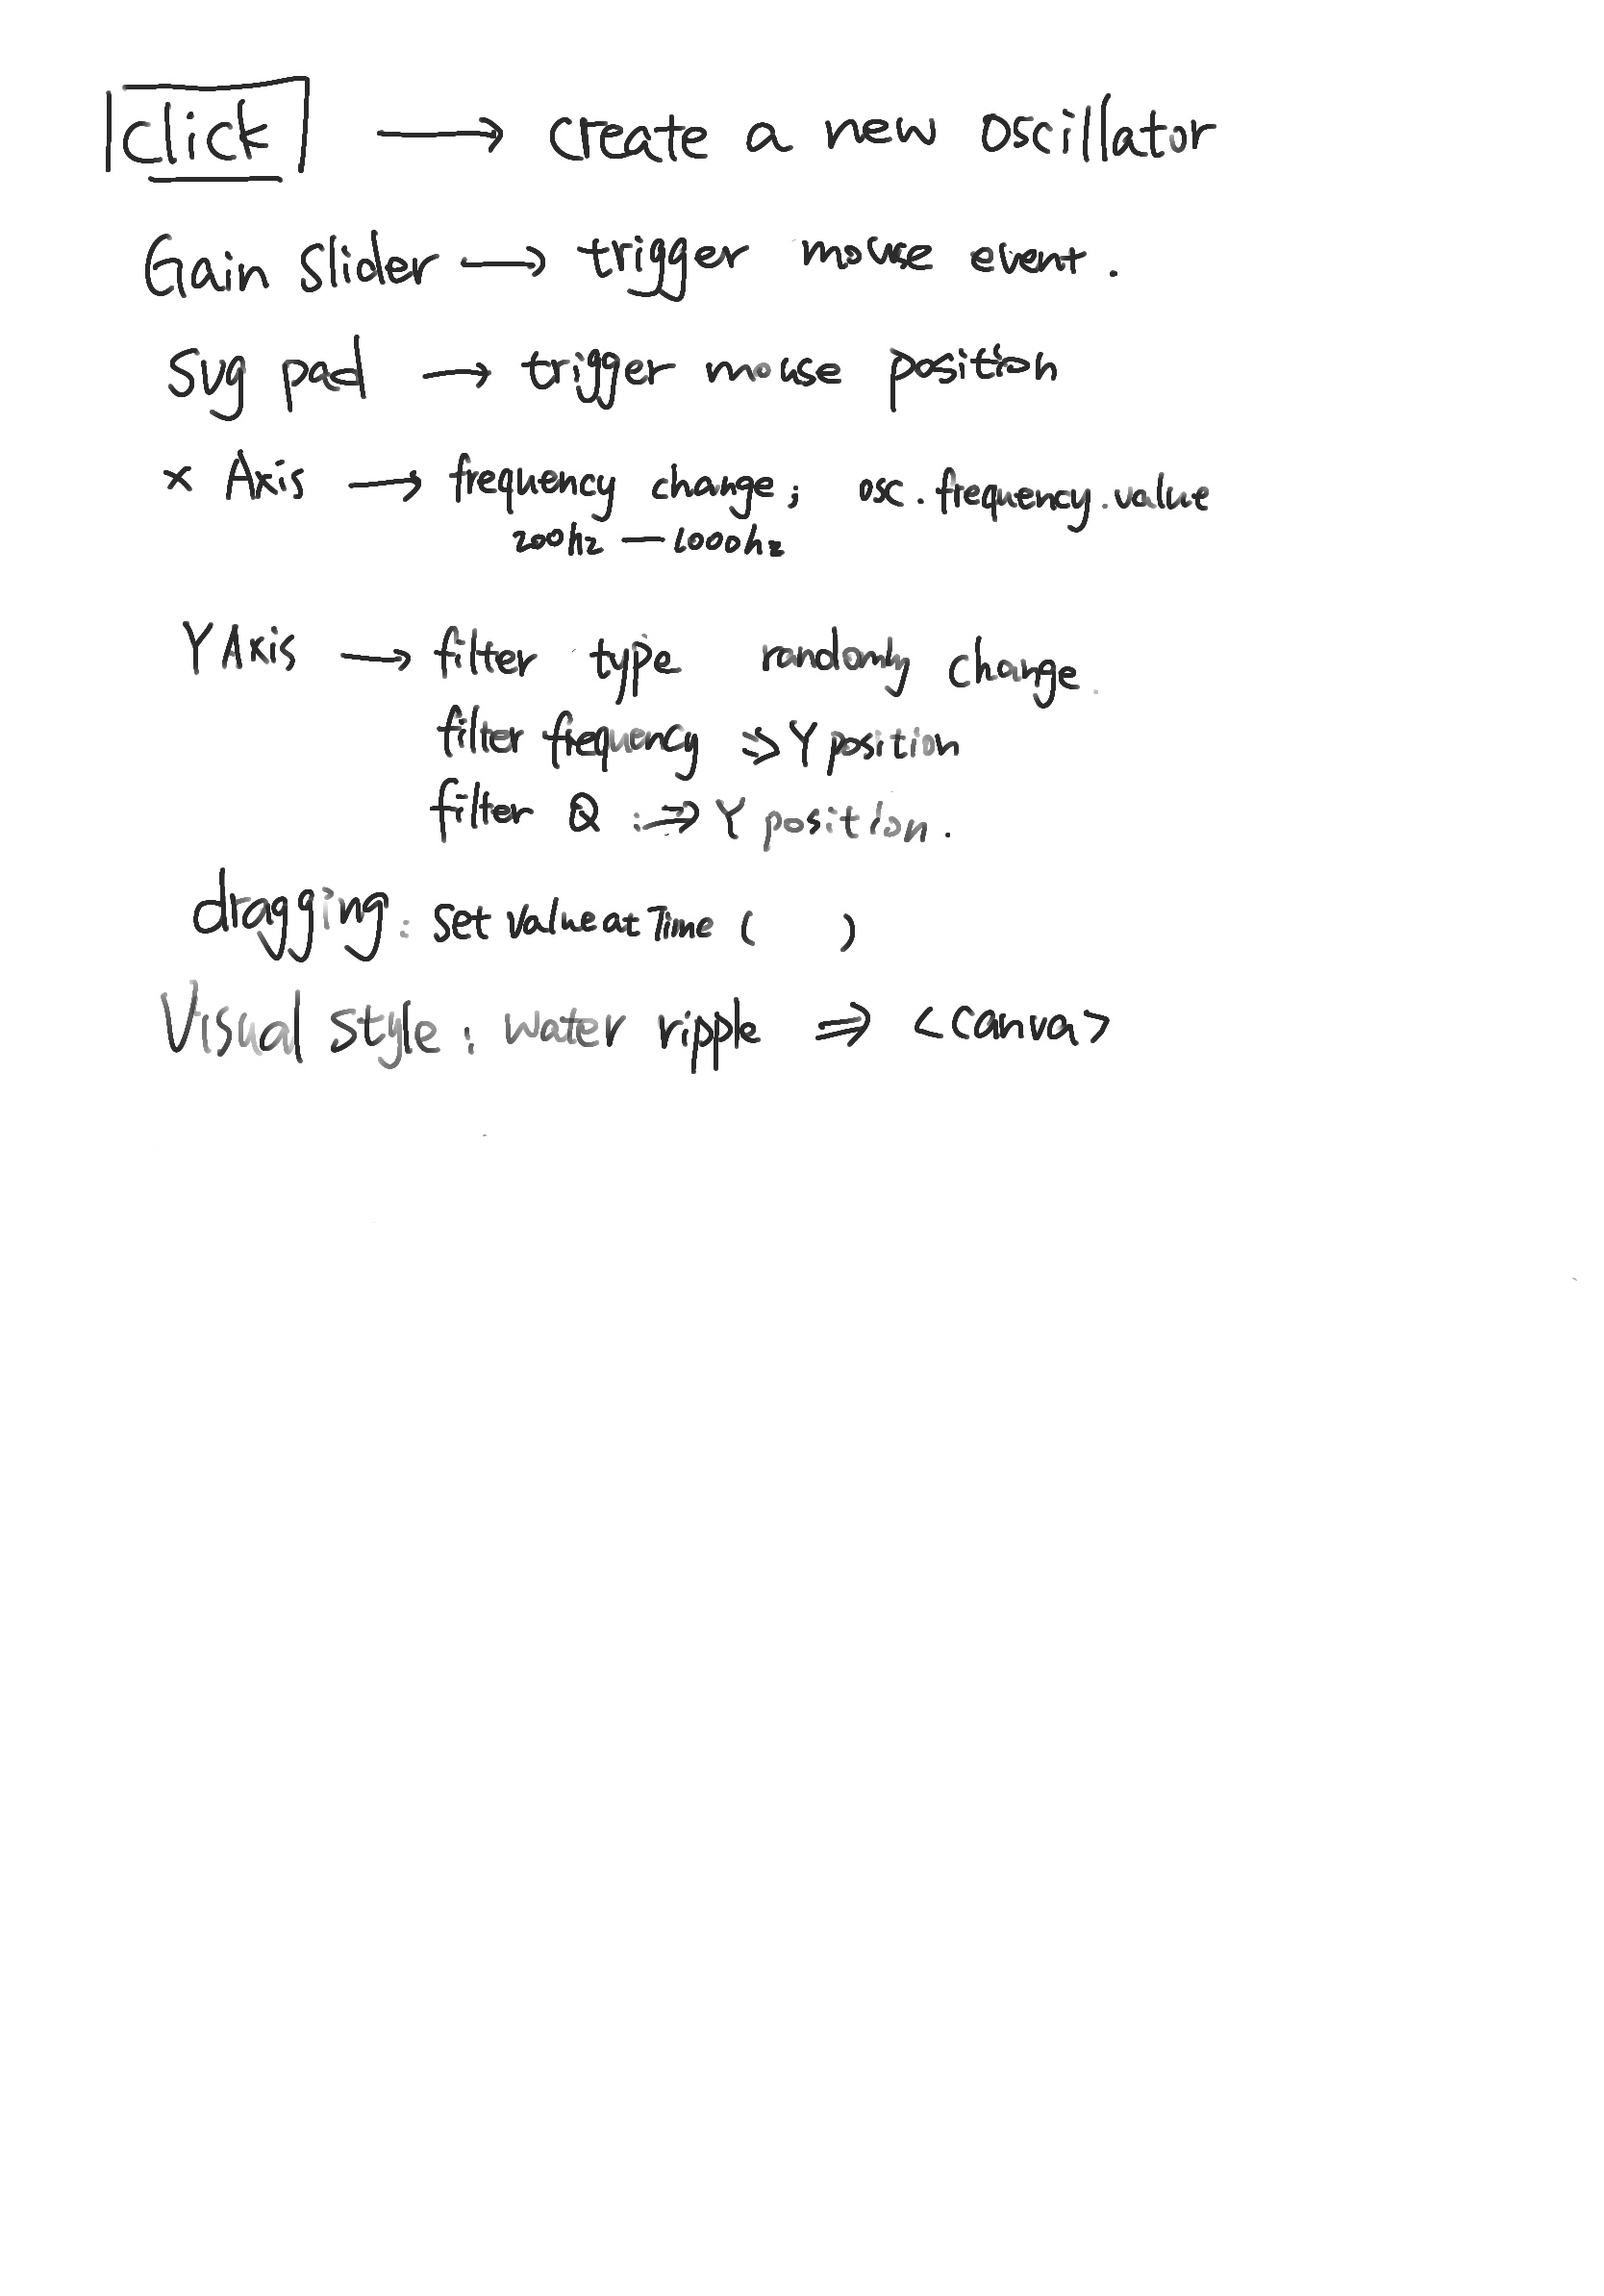 click → create a new oscillator
Gain slider → trigger mouse event.
Svg pad → trigger mouse position
x Axis → frequency change; osc.frequency.value
200hz — 1000hz
Y Axis → filter type randomly change.
filter frequency ⇒ Y position
filter Q :⇒ Y position.
dragging: set Value at Time ( )
Visual style: water ripple ⇒ <canva>